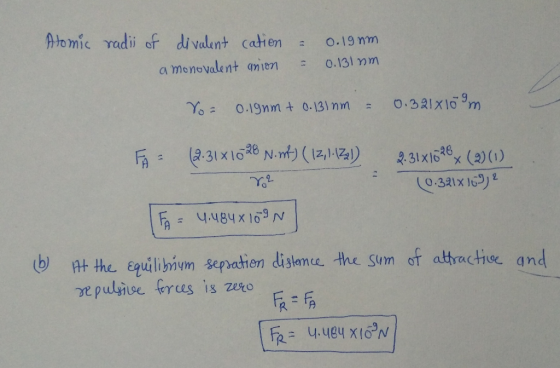 Atomic radii of divalent cation = 0.19nm
a monovalent anion = 0.131 nm
r₀ = 0.19nm + 0.131nm = 0.321×10⁻⁹m
F_A = (2.31×10⁻²⁸ N.m²)(|Z₁|.|Z₂|) / r₀² = 2.31×10⁻²⁸ × (2)(1) / (0.321×10⁻⁹)²
F_A = 4.484×10⁻⁹ N
(b) At the equilibrium sepration distance the sum of attractive and
repulsive forces is zero
F_R = F_A
F_R = 4.484 ×10⁻⁹N